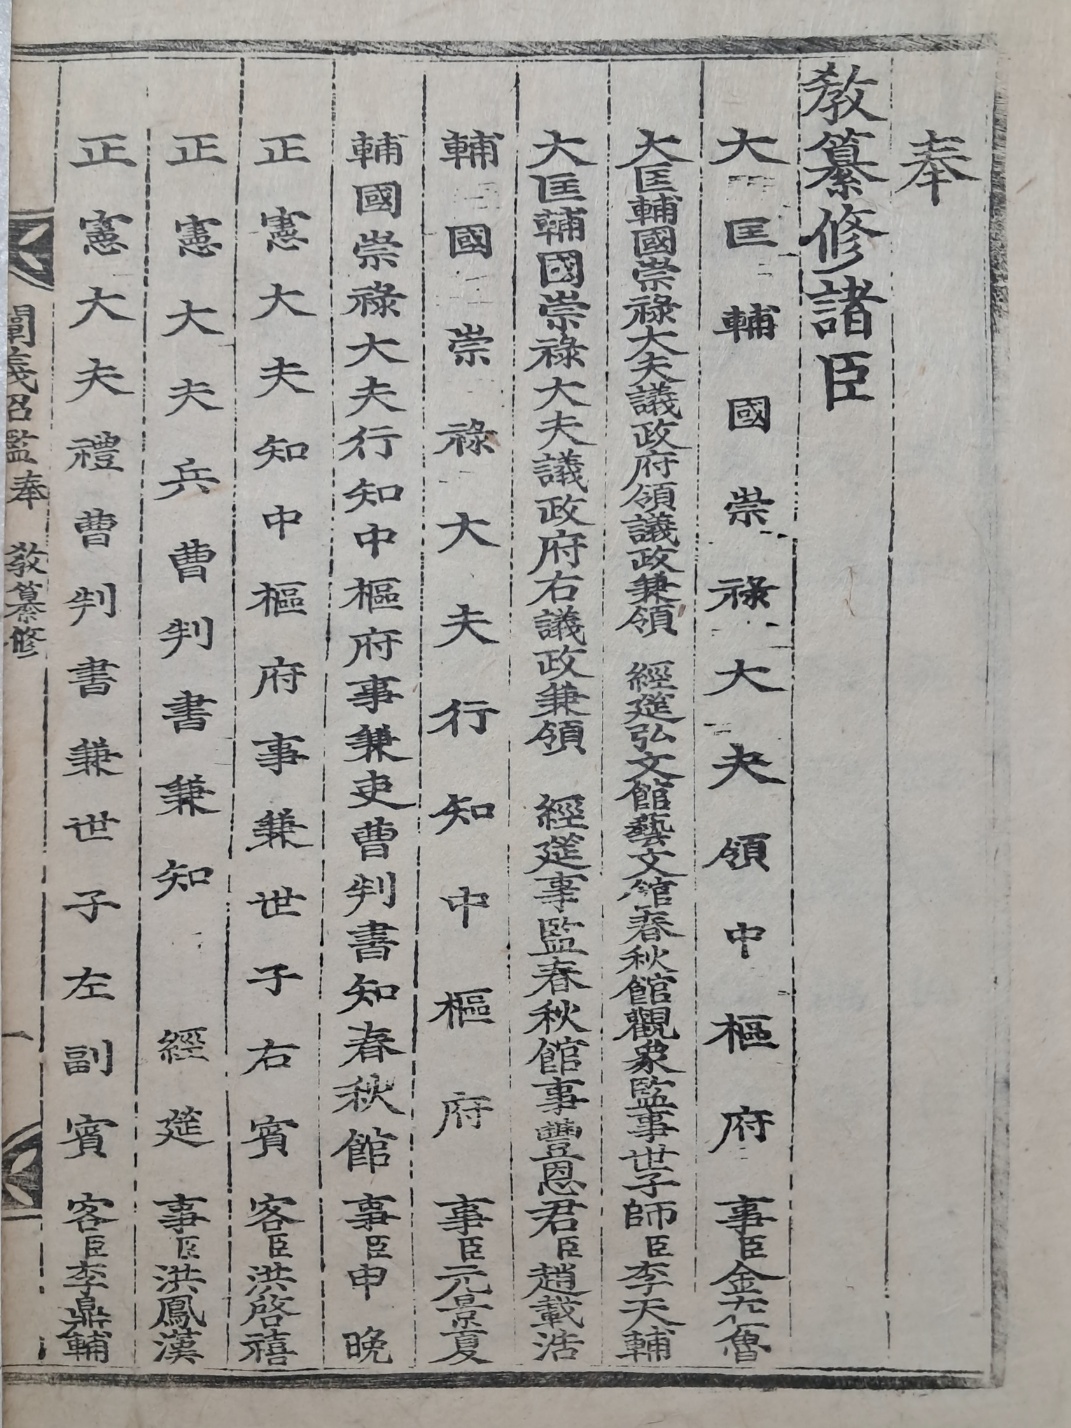 奉
教纂修諸臣
大匡輔國崇祿大夫領中樞府事臣金在魯
大匡輔國崇祿大夫議政府領議政兼領 經筵弘文館藝文館春秋館觀象監事世子師臣李天輔
大匡輔國崇祿大夫議政府右議政兼領 經筵事監春秋館事豐恩君臣趙載浩
輔國崇祿大夫行知中樞府事臣元景夏
輔國崇祿大夫行知中樞府事兼吏曹判書知春秋館事臣申晚
正憲大夫知中樞府事兼世子右賓客臣洪啓禧
正憲大夫兵曹判書兼知 經筵事臣洪鳳漢
正憲大夫禮曹判書兼世子左副賓客臣李鼎輔
闡義昭鑑奉 教纂修 一